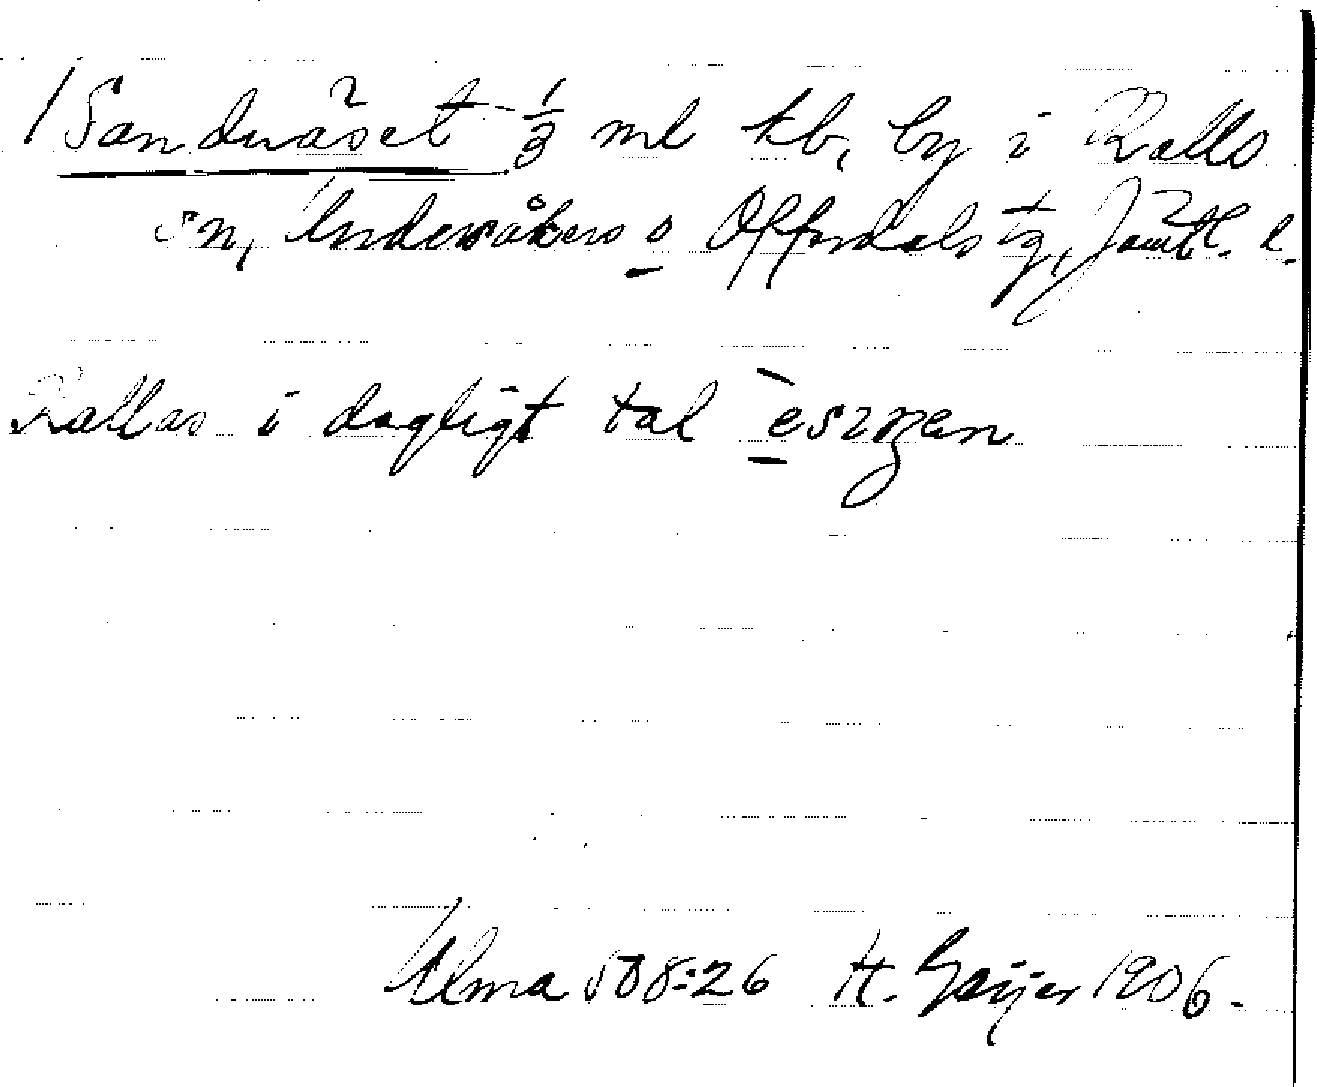 Sandnäset 1/3 mtl kb, by i Kalls
sn, Undersåkers o Offerdals tg, Jämtl. l.
Kallas i dagligt tal
Ulma 508:26 H. Geijer 1906.